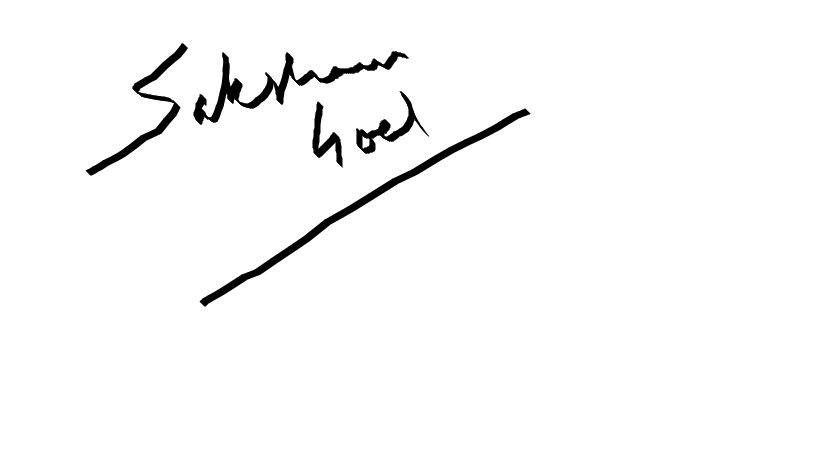 Saksham
Goel